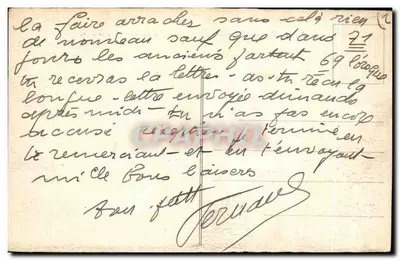 la faire arracher sans cela rien
de nouveau sauf que dans 71
jours les anciens partent 69 lorsque
tu recevras la lettre - as-tu reçu la
longue lettre envoyée dimanche
après midi - tu n'as pas encore
accusé réception je termine en
te remerciant - et en t'envoyant
mille bons baisers
ton petit
Fernand